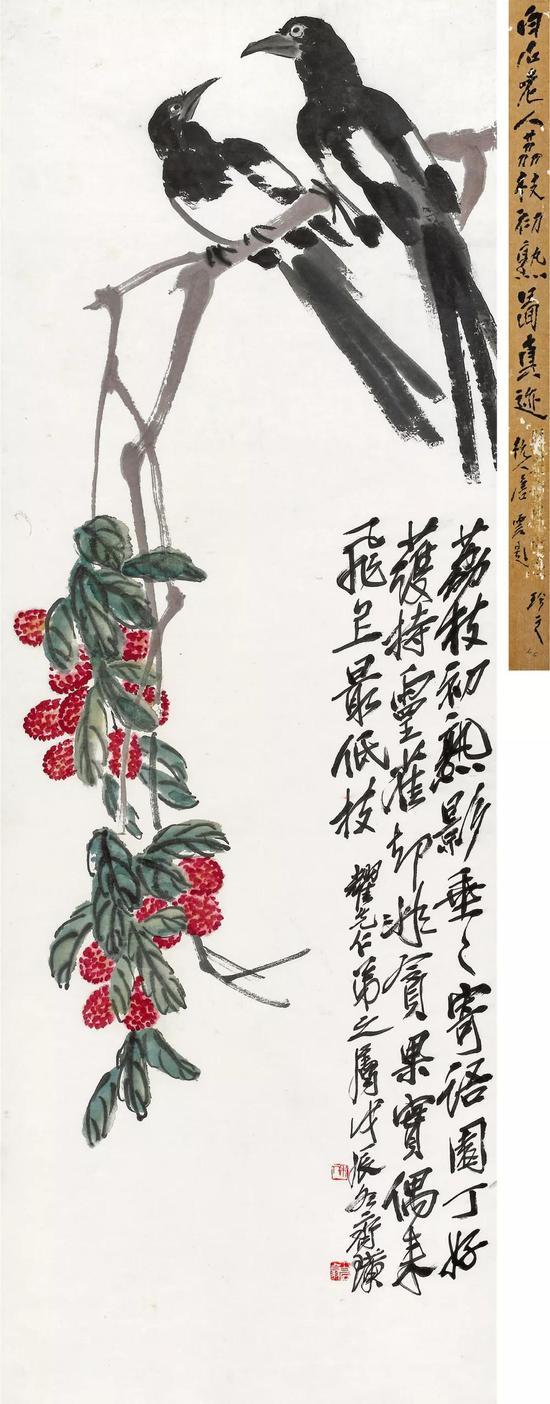 白石老人荔枝初熟圖真迹 杭人唐雲題
荔枝初熟影垂〻寄語園丁好
護持靈雀却非貪果實偶来
飛上最低枝
耀先仁弟之屬戊辰冬齊璜